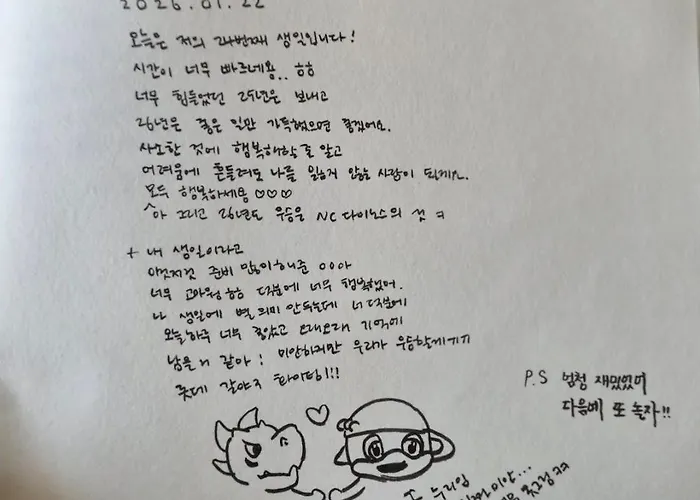 2026.01.22
오늘은 저의 24번째 생일입니다!
시간이 너무 빠르네용.. ㅎㅎ
너무 힘들었던 25년은 보내고
26년은 좋은 일만 가득했으면 좋겠어요.
사소한 것에 행복해할 줄 알고
어려움에 흔들려도 나를 잃지 않는 사람이 되게..
모두 행복하세용 ♡♡♡
^아 그리고 26년도 우승은 NC 다이노스의 것 ㅋ
+ 내 생일이라고
이것저것 준비 많이 해준 ㅇㅇ아
너무 고마워 ㅎㅎ 덕분에 너무 행복했어.
나 생일에 별 의미 안두는데 너 덕분에
오늘 하루 너무 좋았고 오래오래 기억에
남을 거 같아! 미안하지만 우리가 우승할게 ㅋㅋ
롯데 갈아 화이팅!!!
P.S 엄청 재밌었어
다음에 또 놀자!!